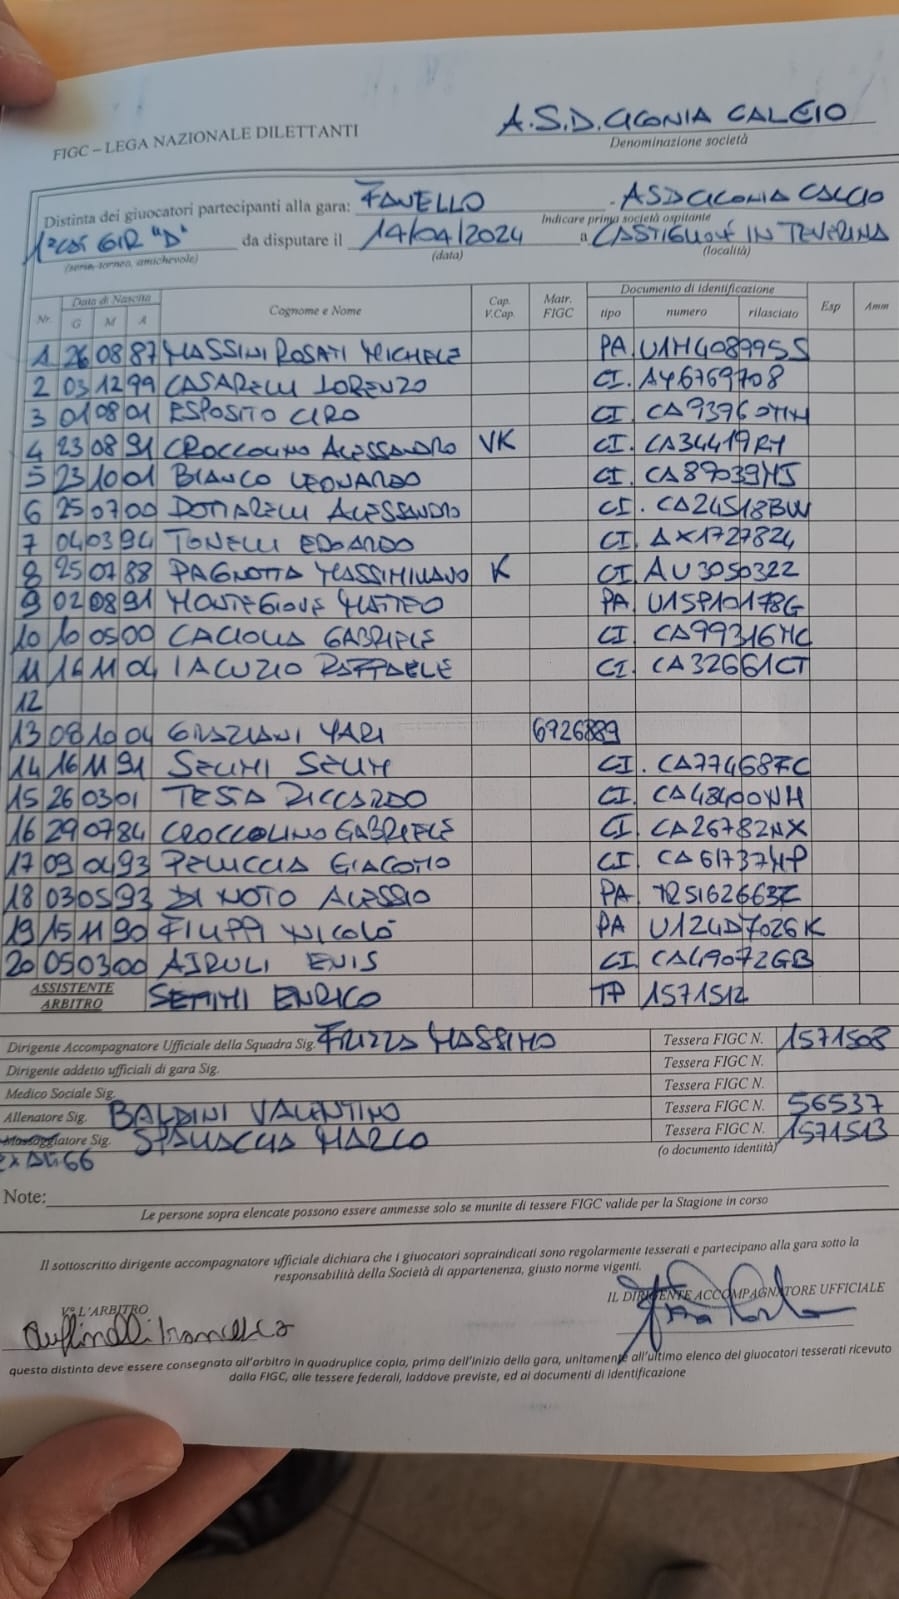 FIGC – LEGA NAZIONALE DILETTANTI
A.S.D. CICONIA CALCIO
Denominazione società
Distinta dei giuocatori partecipanti alla gara: FANELLO - ASD CICONIA CALCIO
Indicare prima società ospitante
1ª CAT GIR "D" da disputare il 14/04/2024 a CASTIGLIONE IN TEVERINA
(serie, torneo, amichevole) (data) (località)
Nr. Data di Nascita G M A Cognome e Nome Cap. V.Cap. Matr. FIGC Documento di Identificazione tipo numero rilasciato Esp Amm
1 26 08 87 MASSINI ROSATI MICHELE PA U1H408995S
2 03 12 99 CASARELLI LORENZO CI. AY6769708
3 01 08 01 ESPOSITO CIRO CI. CA93760
4 23 08 91 CROCCOLINO ALESSANDRO VK CI. CA34419RY
5 23 10 01 BIANCO LEONARDO CI. CA87039MJ
6 25 07 00 DOTTARELLI ALESSANDRO CI. CA24518BW
7 04 03 94 TONELLI EDOARDO CI. AX1727824
8 25 07 88 PAGNOTTA MASSIMILIANO K CI AU3050322
9 02 08 91 MONTEGIOVE MATTEO PA U15P10178G
10 05 00 CACIOLLA GABRIELE CI. CA99316MC
11 16 11 04 IACUZIO RAFFAELE CI. CA32661CT
12
13 08 10 04 GRAZIANI YARI 6926889
14 16 11 91 SELIMI SELIM CI. CA77468FC
15 26 03 01 TESTA RICCARDO CI. CA48400NH
16 29 07 84 CROCCOLINO GABRIELE CI. CA26782NX
17 09 04 93 PELUCCIA GIACOMO CI. CA61737HP
18 03 05 93 DI NOTO ALESSIO PA
19 15 11 90 FILIPPI NICOLÒ PA U124D7026K
20 05 03 00 AJRULI ENIS CI. CA49072GB
ASSISTENTE ARBITRO SETTIMI ENRICO TP 1571512
Dirigente Accompagnatore Ufficiale della Squadra Sig. FRIZZA MASSIMO Tessera FIGC N. 1571508
Dirigente addetto ufficiali di gara Sig. Tessera FIGC N.
Medico Sociale Sig. Tessera FIGC N.
Allenatore Sig. BALDINI VALENTINO Tessera FIGC N. 56537
Massaggiatore Sig. SPALLACCIA MARCO Tessera FIGC N. 1571513
66 (o documento identità)
Note:
Le persone sopra elencate possono essere ammesse solo se munite di tessere FIGC valide per la Stagione in corso
Il sottoscritto dirigente accompagnatore ufficiale dichiara che i giuocatori sopraindicati sono regolarmente tesserati e partecipano alla gara sotto la
responsabilità della Società di appartenenza, giusto norme vigenti.
V° L'ARBITRO IL DIRIGENTE ACCOMPAGNATORE UFFICIALE
questa distinta deve essere consegnata all'arbitro in quadruplice copia, prima dell'inizio della gara, unitamente all'ultimo elenco dei giuocatori tesserati ricevuto
dalla FIGC, alle tessere federali, laddove previste, ed ai documenti di identificazione